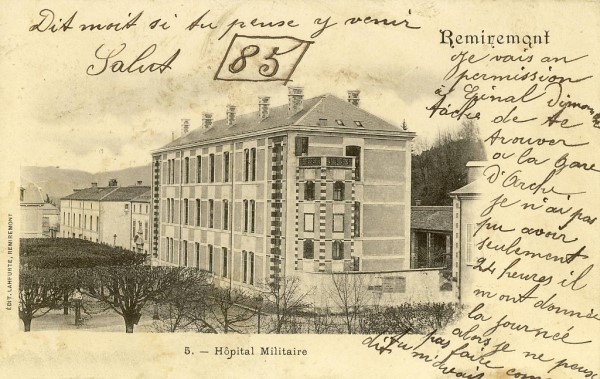 Dit moit si tu peuse y venir
Salut
85
Remiremont
Je vais an
permission
a Epinal Dimanche
tache de te
trouver
a la Gare
D'Arche
je n'ai pas
pu avoir
seulement
24 heures il
m ont donnée
la journée
alors je ne peuse
pas faire comme
tu m'avais
dit
5. — Hôpital Militaire
ÉDIT. LAHFURTE, REMIREMONT